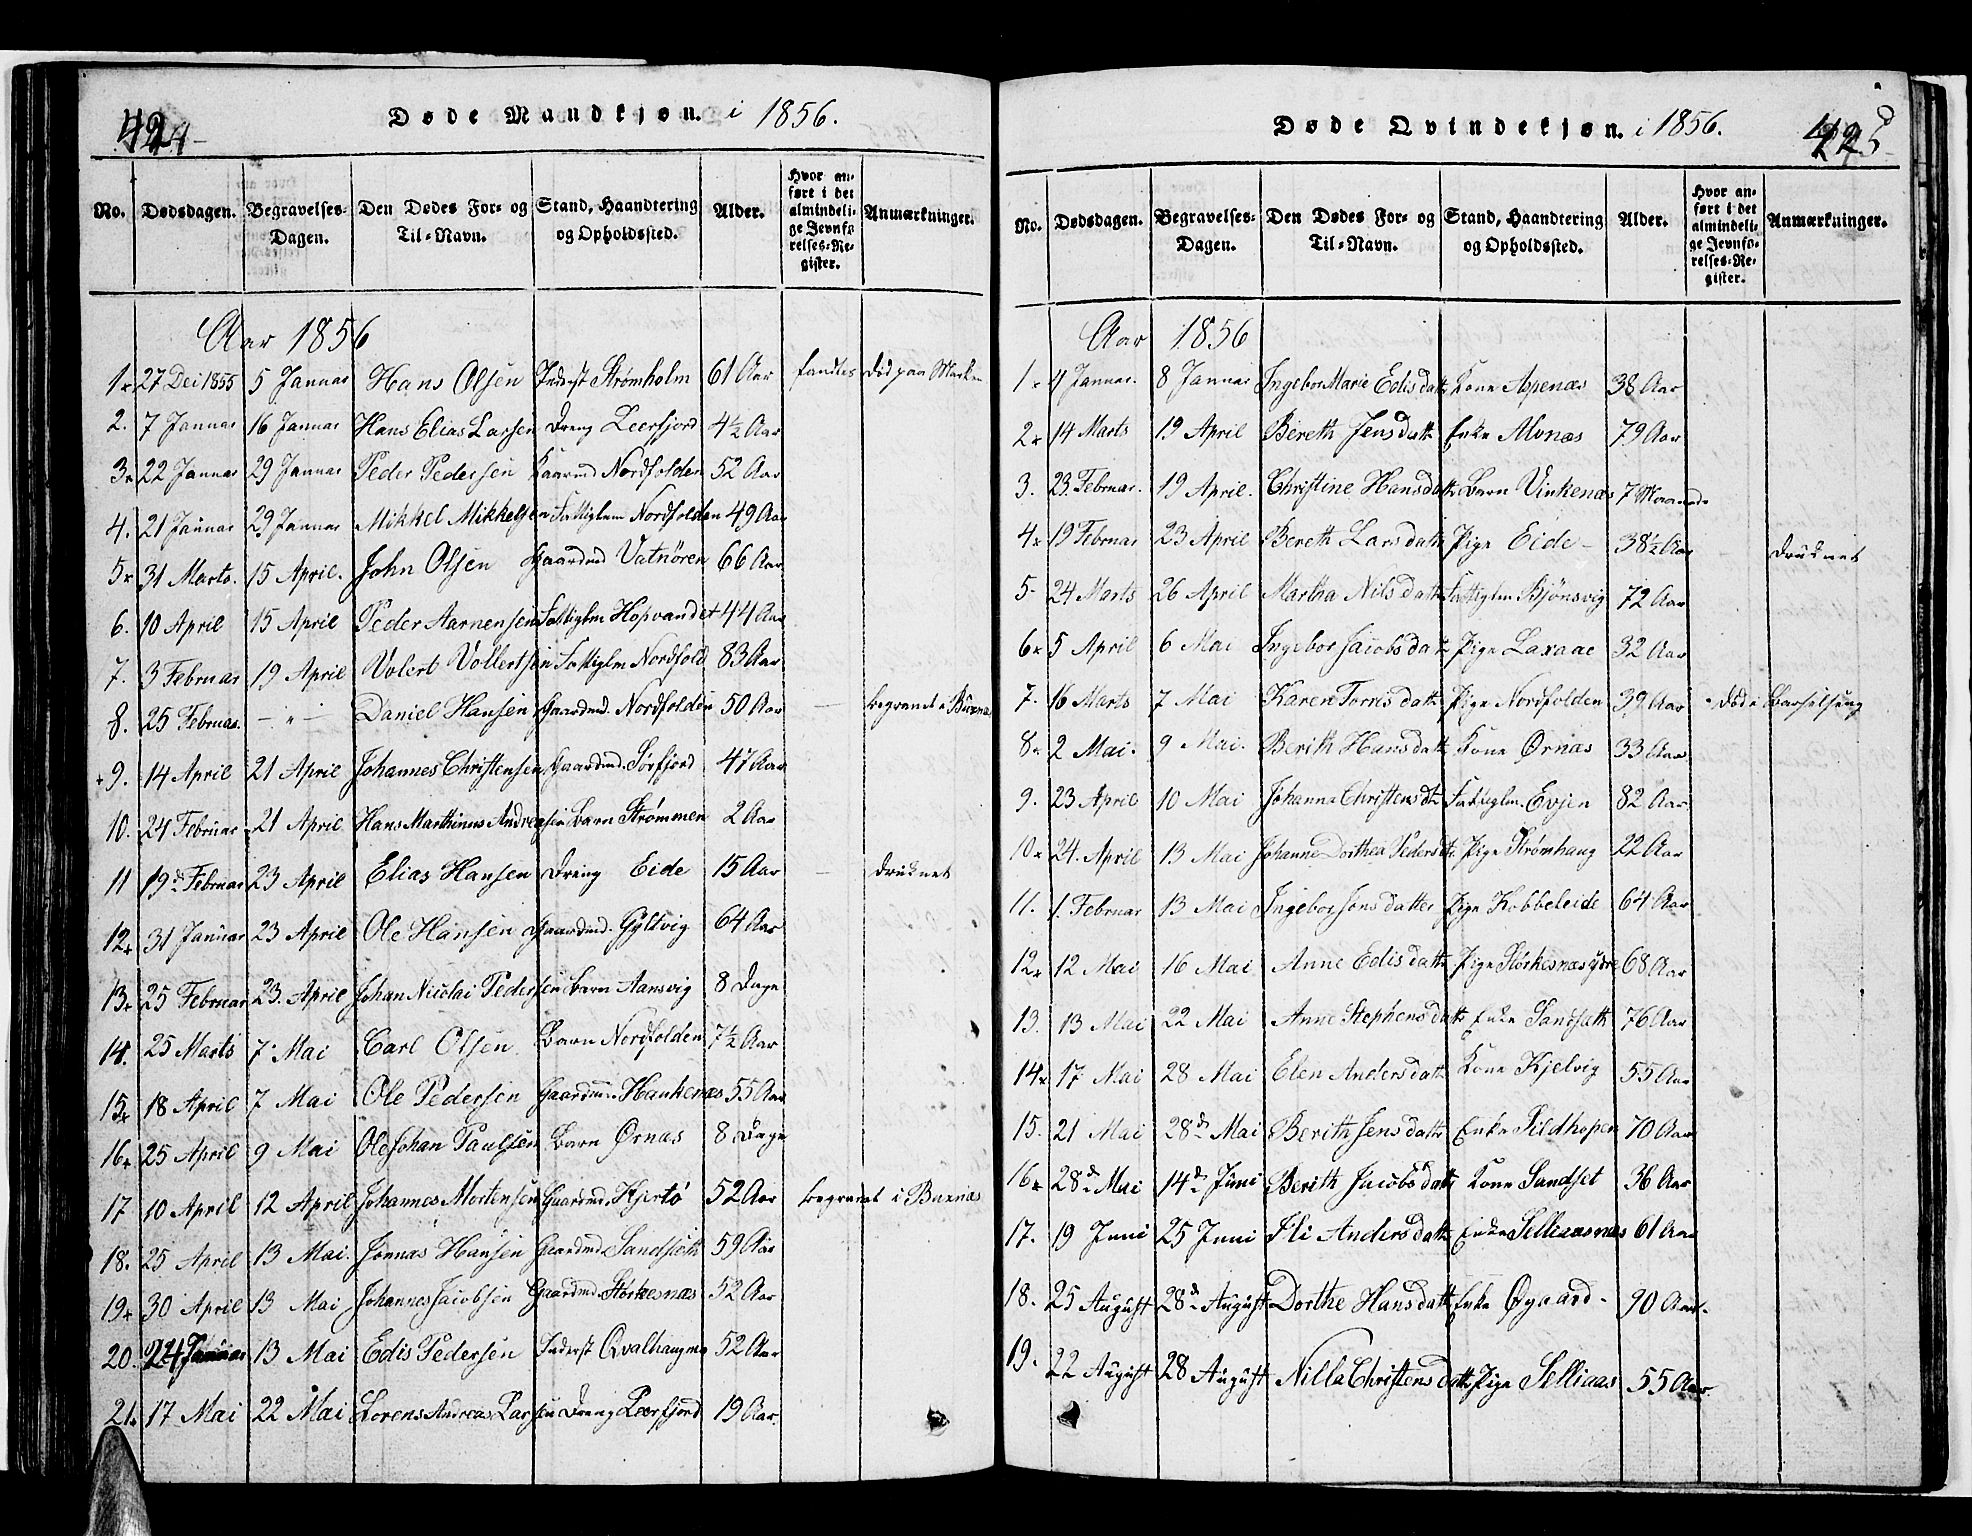 Døde Mandkjøn. i 1856.
No. Dødsdagen. Begravelses-Dagen. Den Dødes For- og Til-Navn. Stand, Haandtering og Opholdssted. Alder. Hvor anført i det almindelige Jevnførelses-Register. Anmærkninger.
Aar 1856
1. 27 Dec 1855 5 Januar Hans Olsen Inderst Strømholm 61 Aar fandtes død paa Marken
2. 7 Januar 16 Januar Hans Elias Larsen Dreng Leerfjord 4½ Aar
3. 22 Januar 29 Januar Peder Pedersen Gaarmd Nordfolden 52 Aar
4. 21 Januar 29 Januar Mikkel Mikkelsen Fattiglm Nordfolden 49 Aar
5. 31 Marts. 15 April. John Olsen Gaardmd Vatnøren 66 Aar
6. 10 April 15 April Peder Aarnensen Fattiglm Hopvandet 44 Aar
7. 3 Februar 19 April Volert Vollertsen Fattiglm Nordfold 83 Aar
8. 25 Februar. – " – Daniel Hansen Gaardmd. Nordfolden 50 Aar — begravet i Buxnæ
9. 14 April 21 April Johannes Christensen Gaardmd. Sørfjord 47 Aar
10. 24 Februar 21 April Hans Marthinus Andreasen Barn Strømmen 2 Aar
11 19d. Februar 23 April Elias Hansen Dreng Eide 15 Aar — druknet
12. 31 Januar 23 April Ole Hansen Gaardmd. Gyltvig 64 Aar
13. 25 Februar 23. April Johan Nicolai Pedersen Barn Aansvig 8 Dage
14. 25 Marts 7 Mai Carl Olsen Barn Nordfolden 7½ Aar
15. 18 April 7 Mai Ole Pedersen Gaardm. Haukenæs 55 Aar
16. 25 April 9 Mai Ole Johan Paulsen Barn Ørnæs 8 Dage
17 10 April 12 April Johannes Mortensen Gaardmd. Hjertø 52 Aar begravet i Buxnæs
18. 25 April 13 Mai. Jonnas Hansen Gaardmd Sandsæth 59 Aar
19. 30 April 13 Mai Johannes Jacobsen Gaardmd. Størkesnæs 52 Aar
20. 24 Januar 13 Mai Edis Pedersen Inderst Qvalhaugmo 52 Aar
21. 17 Mai 22 Mai Lorens Andreas Larsen Dreng Leerfjord 19 Aar.
Døde Qvindekjøn. i 1856. 425
No. Dødsdagen. Begravelses-Dagen. Den Dødes For- og Til-Navn. Stand, Haandtering og Opholdssted. Alder. Hvor anført i det almindelige Jevnførelses-Register. Anmærkninger.
Aar 1856
1. 4 Januar. 8 Januar Ingebor Marie Edisdattr Kone Aspenæs 38 Aar
2. 14 Marts 19 April Bereth Jensdattr Enke Alvnæs 79 Aar
3. 23. Februar. 19 April. Christine Hansdattr Barn Vinkenæs 7 Maaneder
4. 19 Februar 23 April Bereth Larsdattr Pige Eide – 38½ Aar — druknet
5. 24 Marts 26 April Martha Nilsdattr Fattiglm Bjønsvig 72 Aar
6. 5 April 6 Mai Ingebor Jacobsdattr Pige Laxaae 32 Aar
7. 16 Marts 7 Mai Karen Torrisdattr Pige Nordfolden 39 Aar død i Barselseng
8. 2 Mai. 9 Mai. Berith Hansdattr Kone Ørnæs 33 Aar
9. 23 April 10 Mai Johanna Christensdtr Fattiglm. Evjen 82 Aar
10. 24. April 13 Mai Johanne Dorthea Pedersdtr. Pige Strømhaug 22 Aar
11. 1. Februar 13 Mai Ingebor Jonsdatter Pige Kobbeleide 64 Aar
12. 12 Mai 16 Mai Anne Edisdattr Pige Størkesnæs ydre 68 Aar
13. 13 Mai 22 Mai Anne Stephensdattr Enke Sandsæth 76 Aar
14. 17 Mai 28 Mai Elen Andersdattr Kone Kjelvig 55 Aar
15. 21 Mai 28d. Mai Berith Jensdattr Enke Sildhopen 70 Aar
16. 28d. Mai 14d. Juni Berith Jacobsdattr Kone Sandset 36 Aar
17. 19 Juni 25 Juni Ili Andersdattr Enke Selliaasnæs 61 Aar
18. 25 August 28d. August Dorthe Hansdattr Enke Øgaard – 90 Aar.
19. 22 August 28 August Nilla Christensdattr Pige Selliaas 55 Aar.